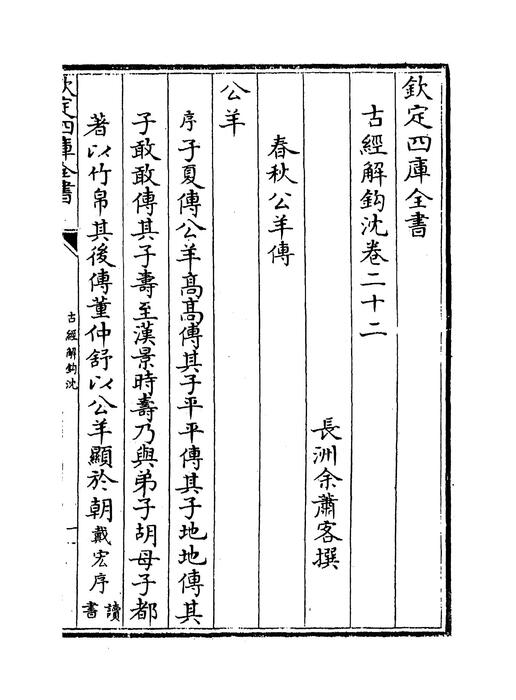 欽定四庫全書
古經解鈎沈卷二十二
長洲余蕭客撰
春秋公羊傳
公羊
序子夏傳公羊髙髙傳其子平平傳其子地地傳其
子敢敢傳其子壽至漢景時壽乃與弟子胡母子都
著以竹帛其後傳董仲舒以公羊顯於朝戴宏序讀書
欽定四庫全書
古經解鈎沈
一